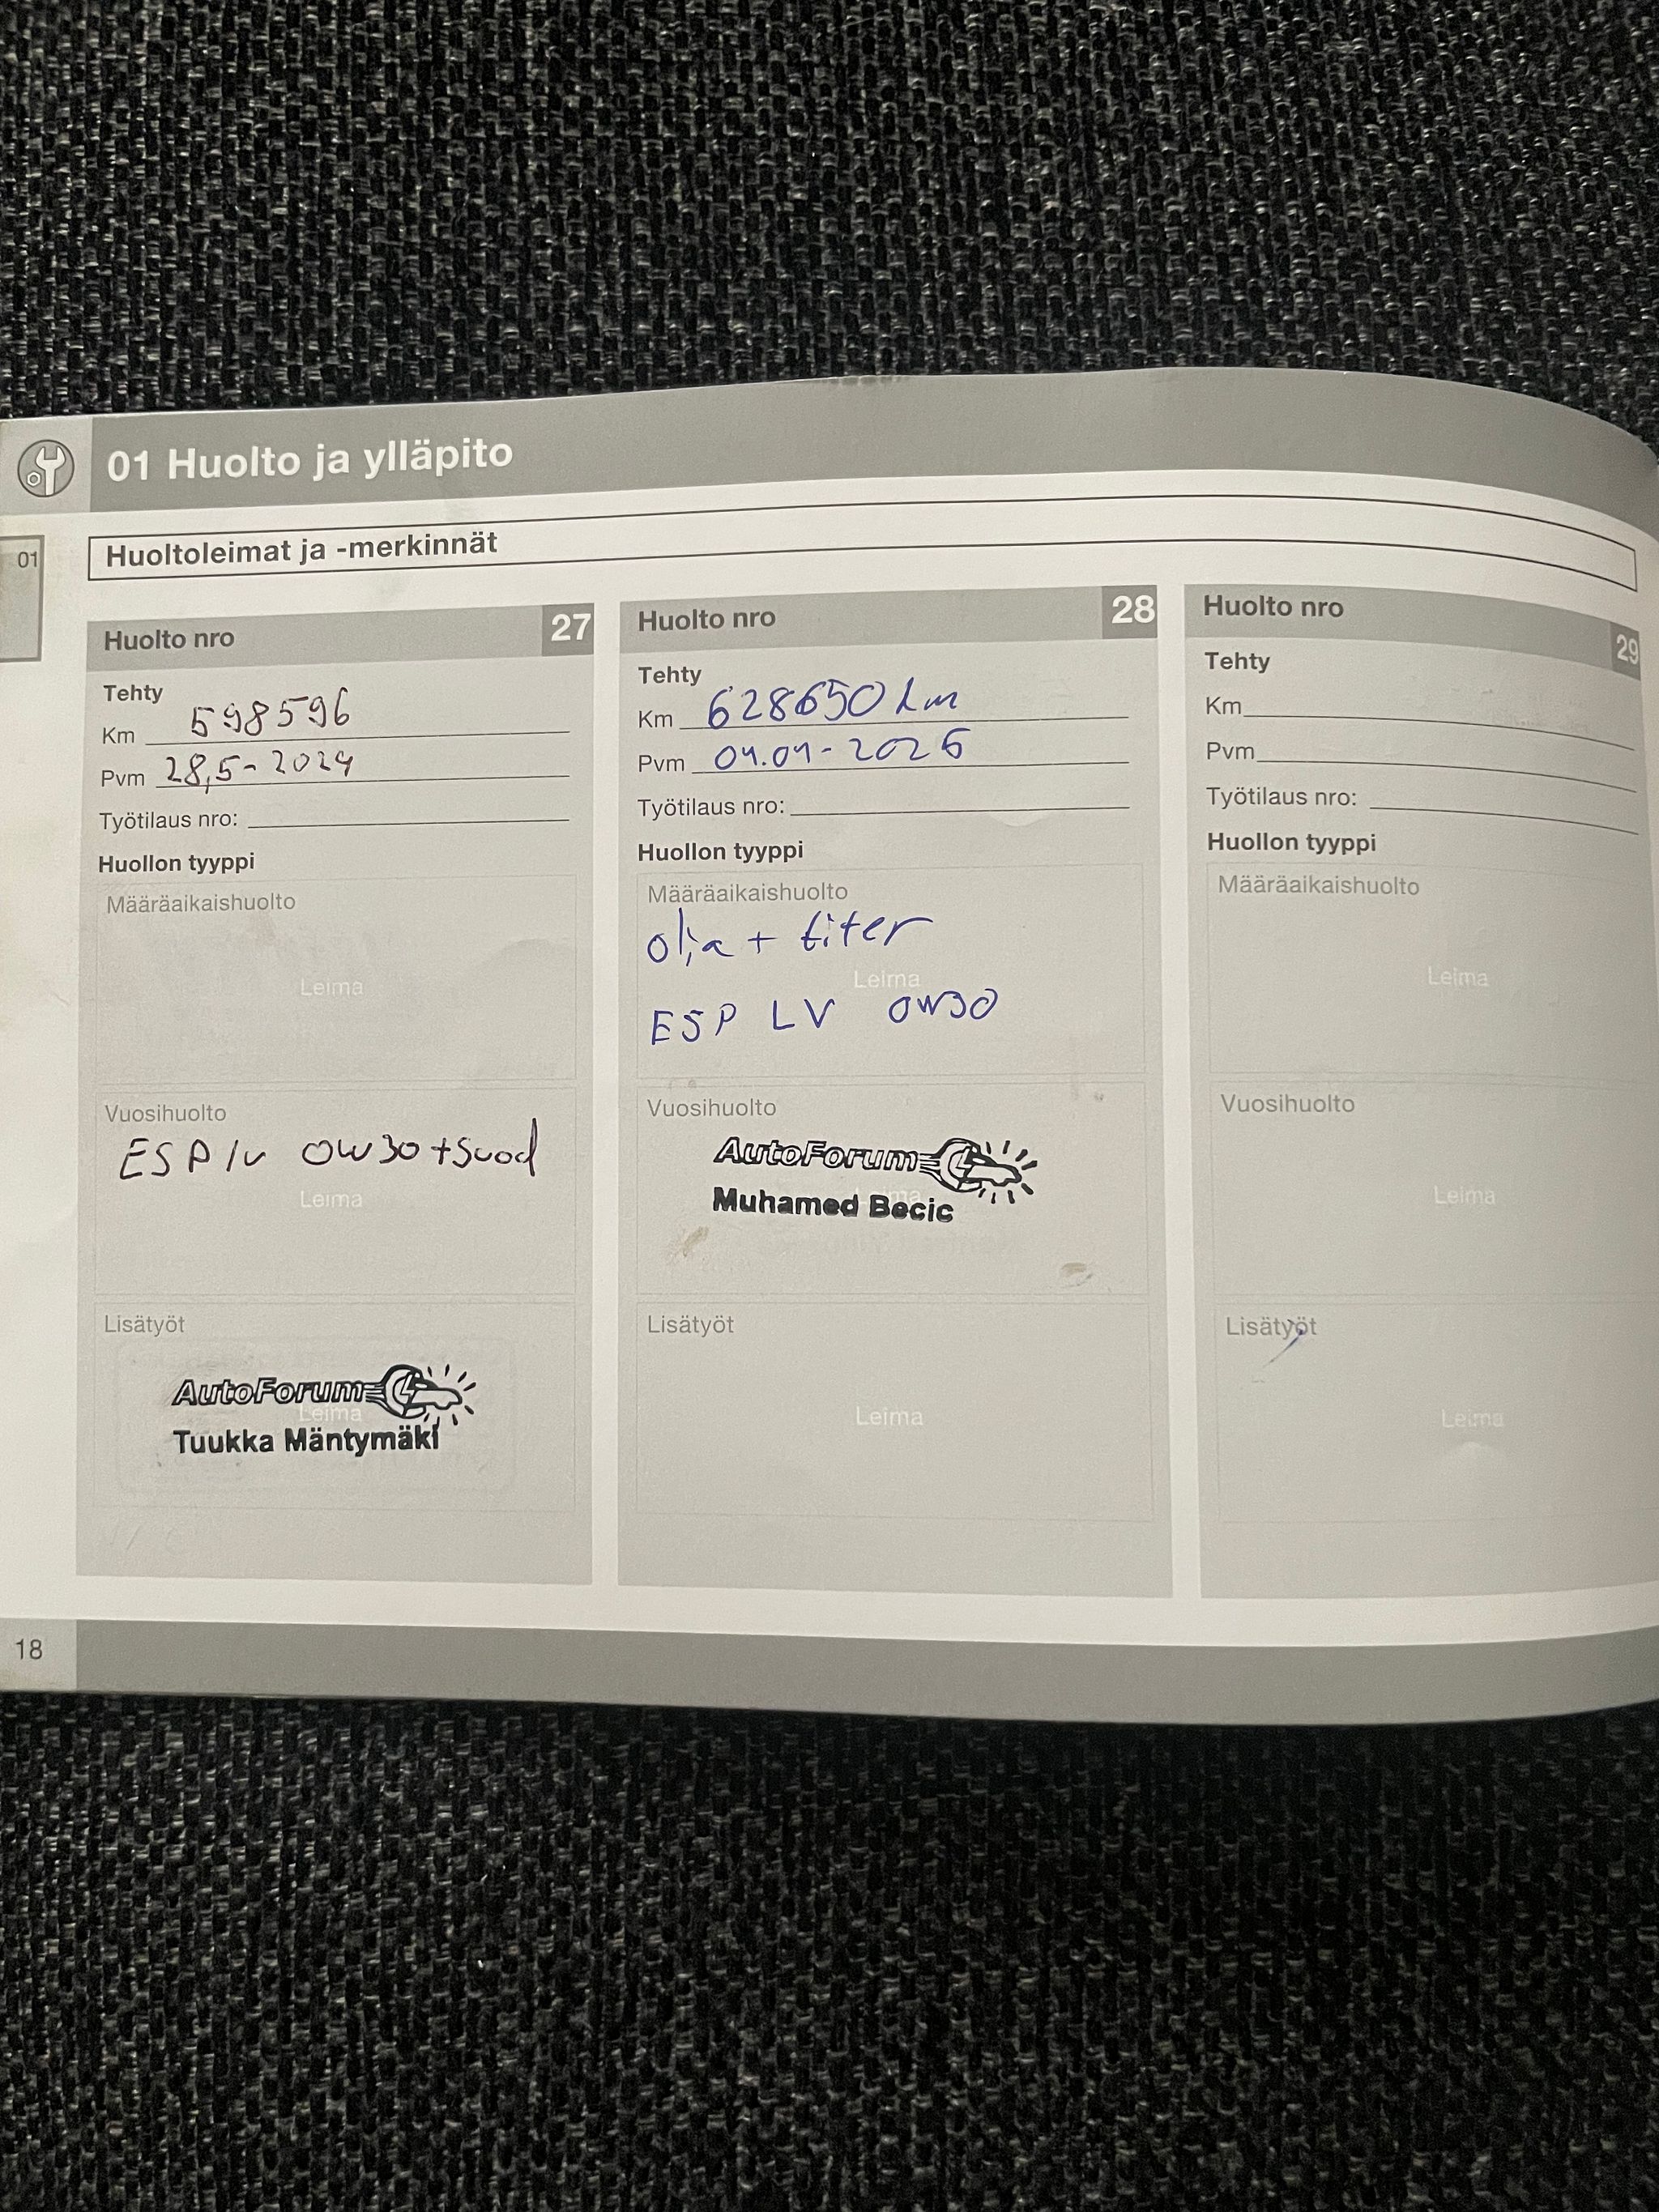 01 Huolto ja ylläpito
01
Huoltoleimat ja -merkinnät
Huolto nro 27
Tehty
Km 598596
Pvm 28,5-2024
Työtilaus nro:
Huollon tyyppi
Määräaikaishuolto
Leima
Vuosihuolto
ESP lv 0w30 +Suod
Leima
Lisätyöt
AutoForum
Leima
Tuukka Mäntymäki
Huolto nro 28
Tehty
Km 628650 km
Pvm 04.04-2026
Työtilaus nro:
Huollon tyyppi
Määräaikaishuolto
olja + filter
Leima
ESP LV 0W30
Vuosihuolto
AutoForum
Muhamed Becic
Lisätyöt
Leima
Huolto nro 29
Tehty
Km
Pvm
Työtilaus nro:
Huollon tyyppi
Määräaikaishuolto
Leima
Vuosihuolto
Leima
Lisätyöt
Leima
18